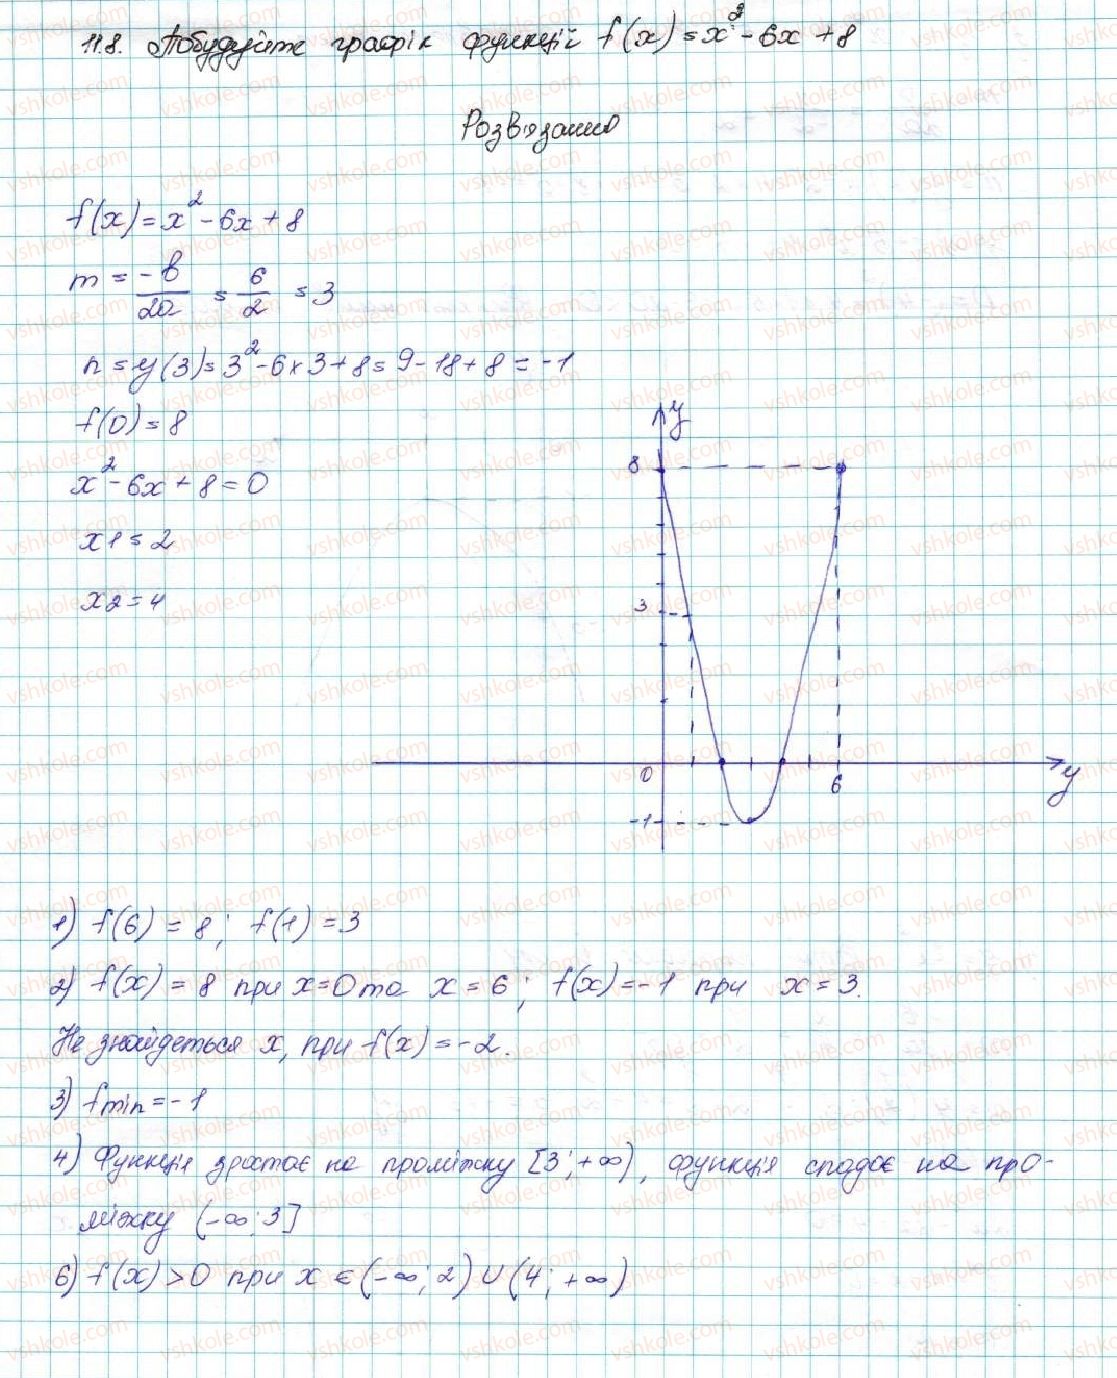 11.8. Побудуйте графік функції f(x) = x² - 6x + 8
Розв'язання
f(x) = x² - 6x + 8
m = -b/2a = 6/2 = 3
n = y(3) = 3² - 6 × 3 + 8 = 9 - 18 + 8 = -1
f(0) = 8
x² - 6x + 8 = 0
x1 = 2
x2 = 4
y
8
3
0
6
y
-1
1) f(6) = 8; f(1) = 3
2) f(x) = 8 при x = 0 та x = 6; f(x) = -1 при x = 3.
Не знайдеться x, при f(x) = -2.
3) fmin = -1
4) Функція зростає на проміжку [3; +∞), функція спадає на про-
міжку (-∞; 3]
6) f(x) > 0 при x ∈ (-∞; 2) ∪ (4; +∞)
vshkole.com